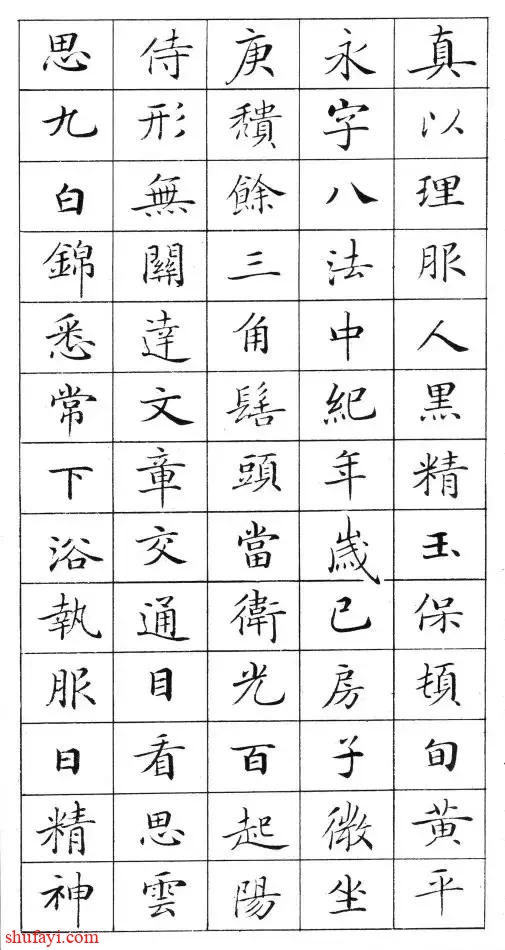 真以理服人黑精玉保頓旬黃平
永字八法中紀年歲已房子微坐
庚穨餘三角髻頭當衛光百起陽
侍形無關達文章交通目看思雲
思九白錦悉常下浴執服日精神
shufayi.com